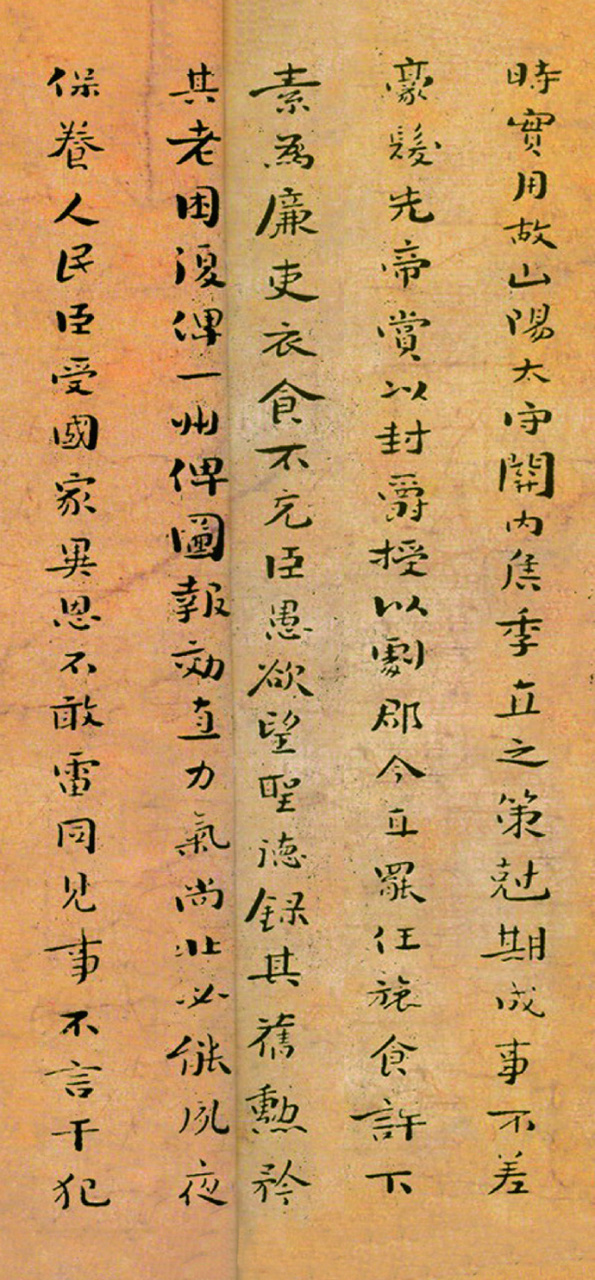 時實用故山陽太守關内侯季直之策尅期成事不差
豪髮先帝賞以封爵授以劇郡今直罷任旅食許下
素爲廉吏衣食不充臣愚欲望聖德録其舊勳矜
其老困復俾一州俾圖報効直力氣尚壯必能夙夜
保養人民臣受國家異恩不敢雷同見事不言干犯